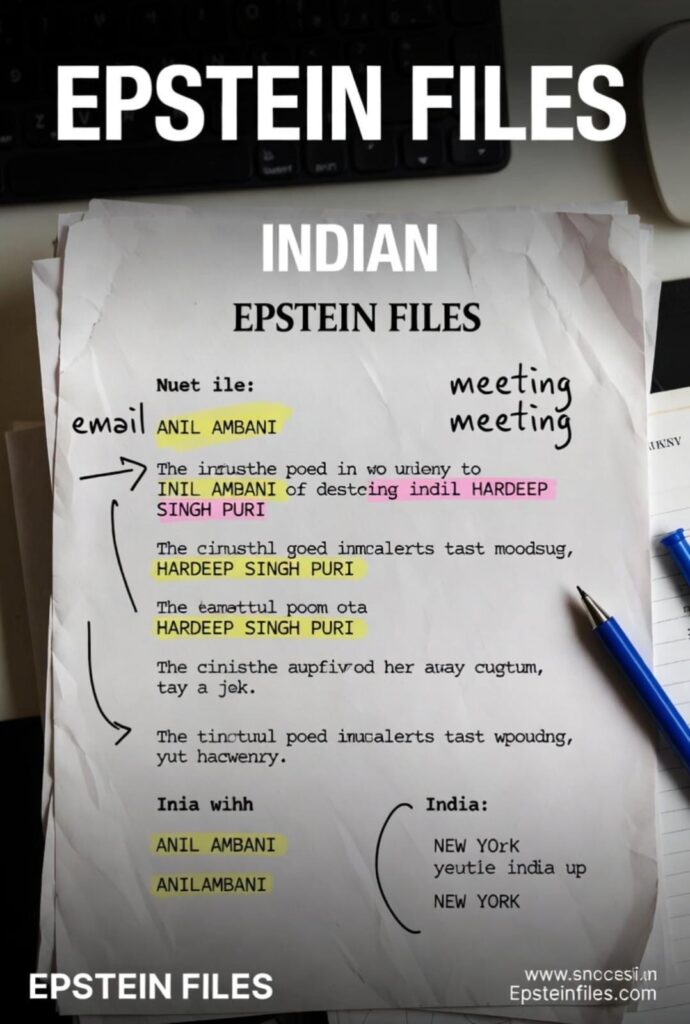 EPSTEIN FILES
INDIAN
EPSTEIN FILES
Nuet ile:
meeting
meeting
email ANIL AMBANI
The inrusthe poed in wo urdeny to
INIL AMBANI of destcing indil HARDEEP
SINGH PURI
The cinusthl goed inmcalerts tast moodsug,
HARDEEP SINGH PURI
The eamattul poom ota
HARDEEP SINGH PURI
The cinisthe aupfivod her away cugtum,
tay a jek.
The tinctuul poed inucalerts tast wpoudng,
yut hacwenry.
Inia wihh
ANIL AMBANI
ANILAMBANI
India:
NEW YOrk
yeutle india up
NEW YORK
EPSTEIN FILES
www.snccesi.in
Epsteinfiles.com